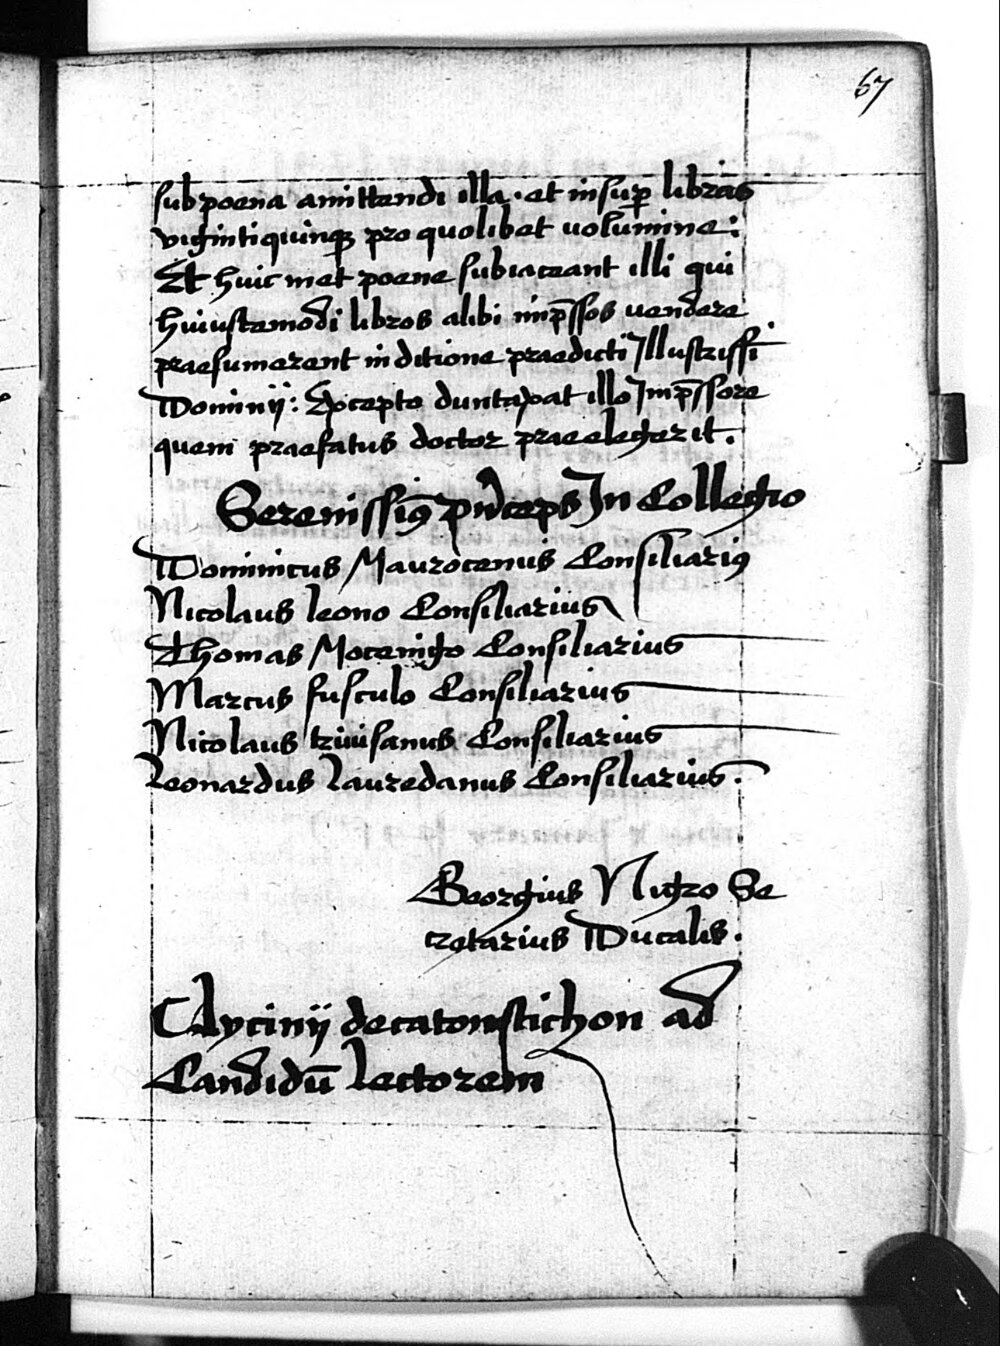 67
sub poena amittendi illa. et insup̱ libras
vigintiquinqꝫ pro quolibet uolumine:
Et huic met poene subiaceant illi qui
huiuscemodi libros alibi imp̄ssos uendere
praesumerent in ditione praedicti Illustrissi
Dominij: Excepto duntaxat illo Imp̄ssore
quem praefatus doctor praeelegerit.
Serenissimꝰ prīceps In Collegio
Dominicus Maurocenus Consiliariꝰ
Nicolaus leono Consiliarius
Thomas Mocenigo Consiliarius
Marcus fusculo Consiliarius
Nicolaus triuisanus Consiliarius
Leonardus Lauredanus Consiliarius.
Georgius Nigro Se
cretarius Ducalis.
Glycinij decatonstichon ad
Candidū lectorem